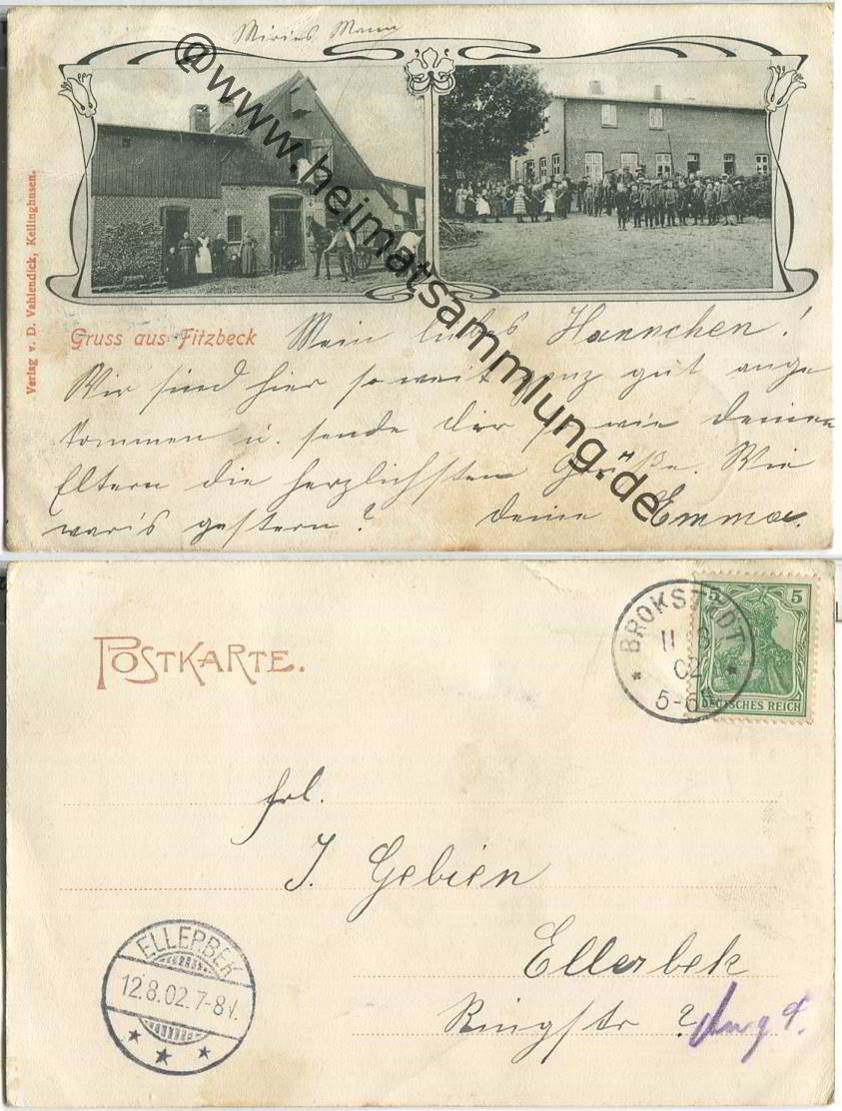 @www.heimatsammlung.de
Verlag v. D. Vahlendick, Kellinghusen.
Gruss aus Fitzbeck Mein liebes Hannchen!
Wir sind hier so weit ganz gut ange
kommen u. sende dir sowie deinen
Eltern die herzlichsten Grüße. Wie
war's gestern? deine Emma.
POSTKARTE.
BROKSTEDT
11
02
5-6
5
DEUTSCHES REICH
Frl.
J. Gebien
Ellerbek
Ringstr ?
ELLERBEK
12.8.02.7-8V.